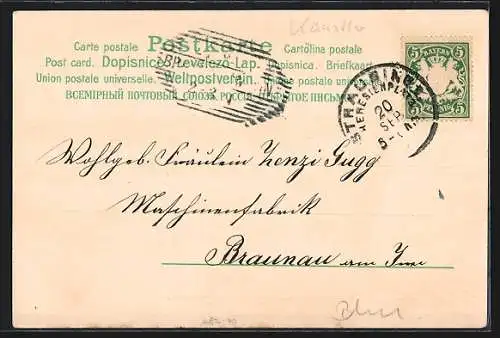 Künstler
Carte postale Postkarte Cartolina postale
Post card. Dopisnice. Levelező-Lap. Dopisnica. Briefkaart.
Union postale universelle. Weltpostverein. postale universale.
ВСЕМІРНЫЙ ПОЧТОВЫЙ СОЮЗ. РОССІЯ. ОТКРЫТОЕ ПИСЬМО.
5 BAYERN 5
5 5
STRAUBING
THERESIENPLATZ
20
SEP
Wohlgeb. Fräulein Zenzi Gugg
Maschinenfabrik
Braunau am Inn